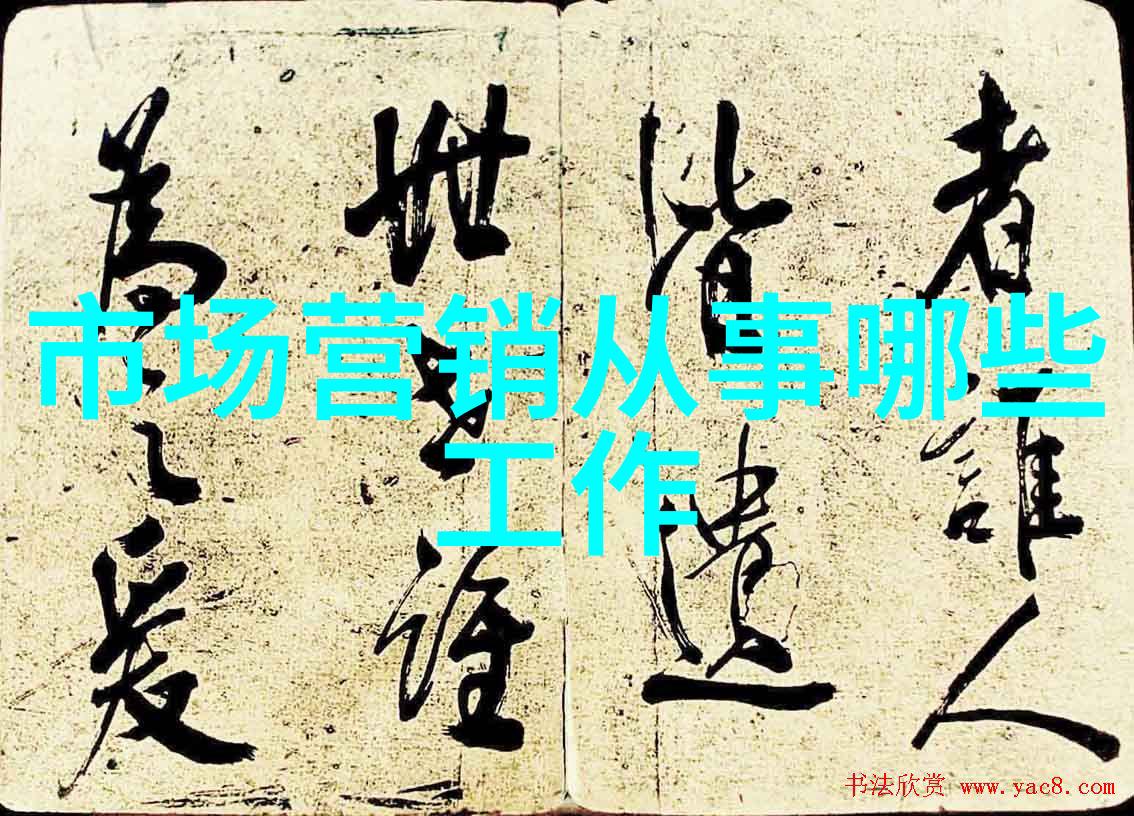 市场营销从事哪些
工作
者誰人
皆遺
世誰
為
书法欣赏 www.yac8.com